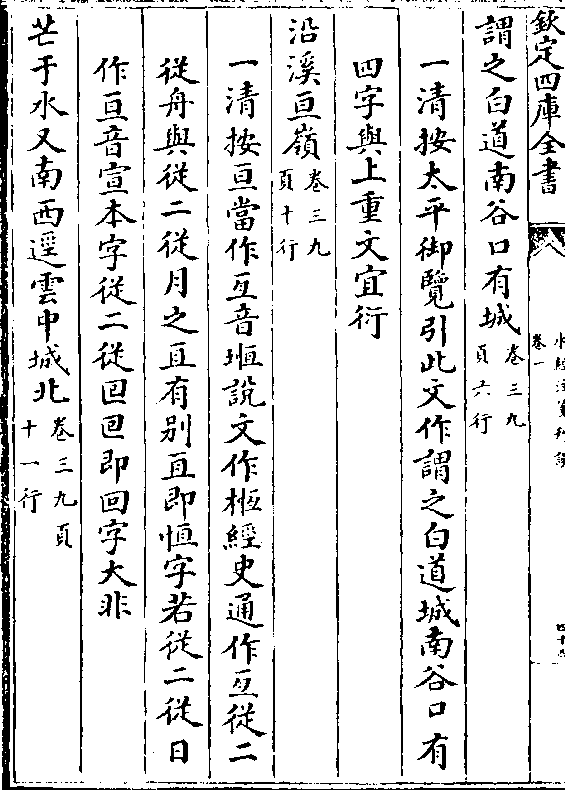 欽定四庫全書
水經注箋刊誤
卷一
謂之白道南谷口有城卷三九
頁六行
一清按太平御覽引此文作謂之白道城南谷口有
四字與上重文宜衍
沿溪亘嶺卷三九
頁十行
一清按亘當作亙音堩說文作㮓經史通作亙從二
從舟與從二從月之亙有别亙即恒字若從二從日
作亘音宣本字從二從囘囘即回字大非
芒于水又南西逕雲中城北卷三九頁
十一行